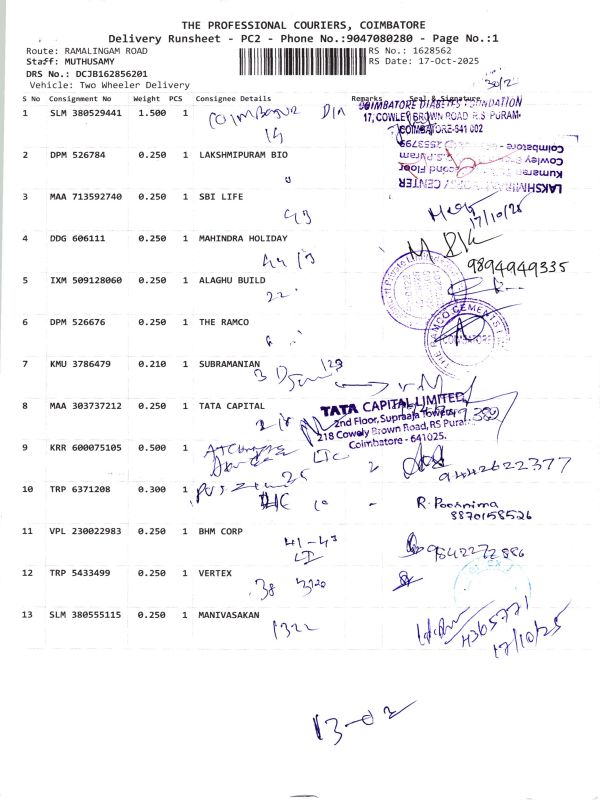 THE PROFESSIONAL COURIERS, COIMBATORE
Delivery Runsheet - PC2 - Phone No.:9047080280 - Page No.:1
Route: RAMALINGAM ROAD
RS No.: 1628562
Staff: MUTHUSAMY
RS Date: 17-Oct-2025
DRS No.: DCJB162856201
Vehicle: Two Wheeler Delivery
S No Consignment No Weight PCS Consignee Details Remarks Seal & Signature
1 SLM 380529441 1.500 1
COIMBATORE DIABETES FOUNDATION
17, COWLEY BROWN ROAD R.S PURAM
COIMBATORE-641 002
2 DPM 526784 0.250 1 LAKSHMIPURAM BIO
3 MAA 713592740 0.250 1 SBI LIFE
17/10/25
4 DDG 606111 0.250 1 MAHINDRA HOLIDAY
9894949335
5 IXM 509128060 0.250 1 ALAGHU BUILD
22
6 DPM 526676 0.250 1 THE RAMCO
THE RAMCO CEMENTS
COIMBATORE
7 KMU 3786479 0.210 1 SUBRAMANIAN
8 MAA 303737212 0.250 1 TATA CAPITAL
TATA CAPITAL LIMITED
2nd Floor, Supraaja Towers,
218 Cowely Brown Road, RS Puram,
Coimbatore - 641025.
9 KRR 600075105 0.500 1
LIC
9442622377
10 TRP 6371208 0.300 1
LIC
R. Poornima
8870158526
11 VPL 230022983 0.250 1 BHM CORP
41-43
9842272886
12 TRP 5433499 0.250 1 VERTEX
38
13 SLM 380555115 0.250 1 MANIVASAKAN
1322
4365771
17/10/25
13-02